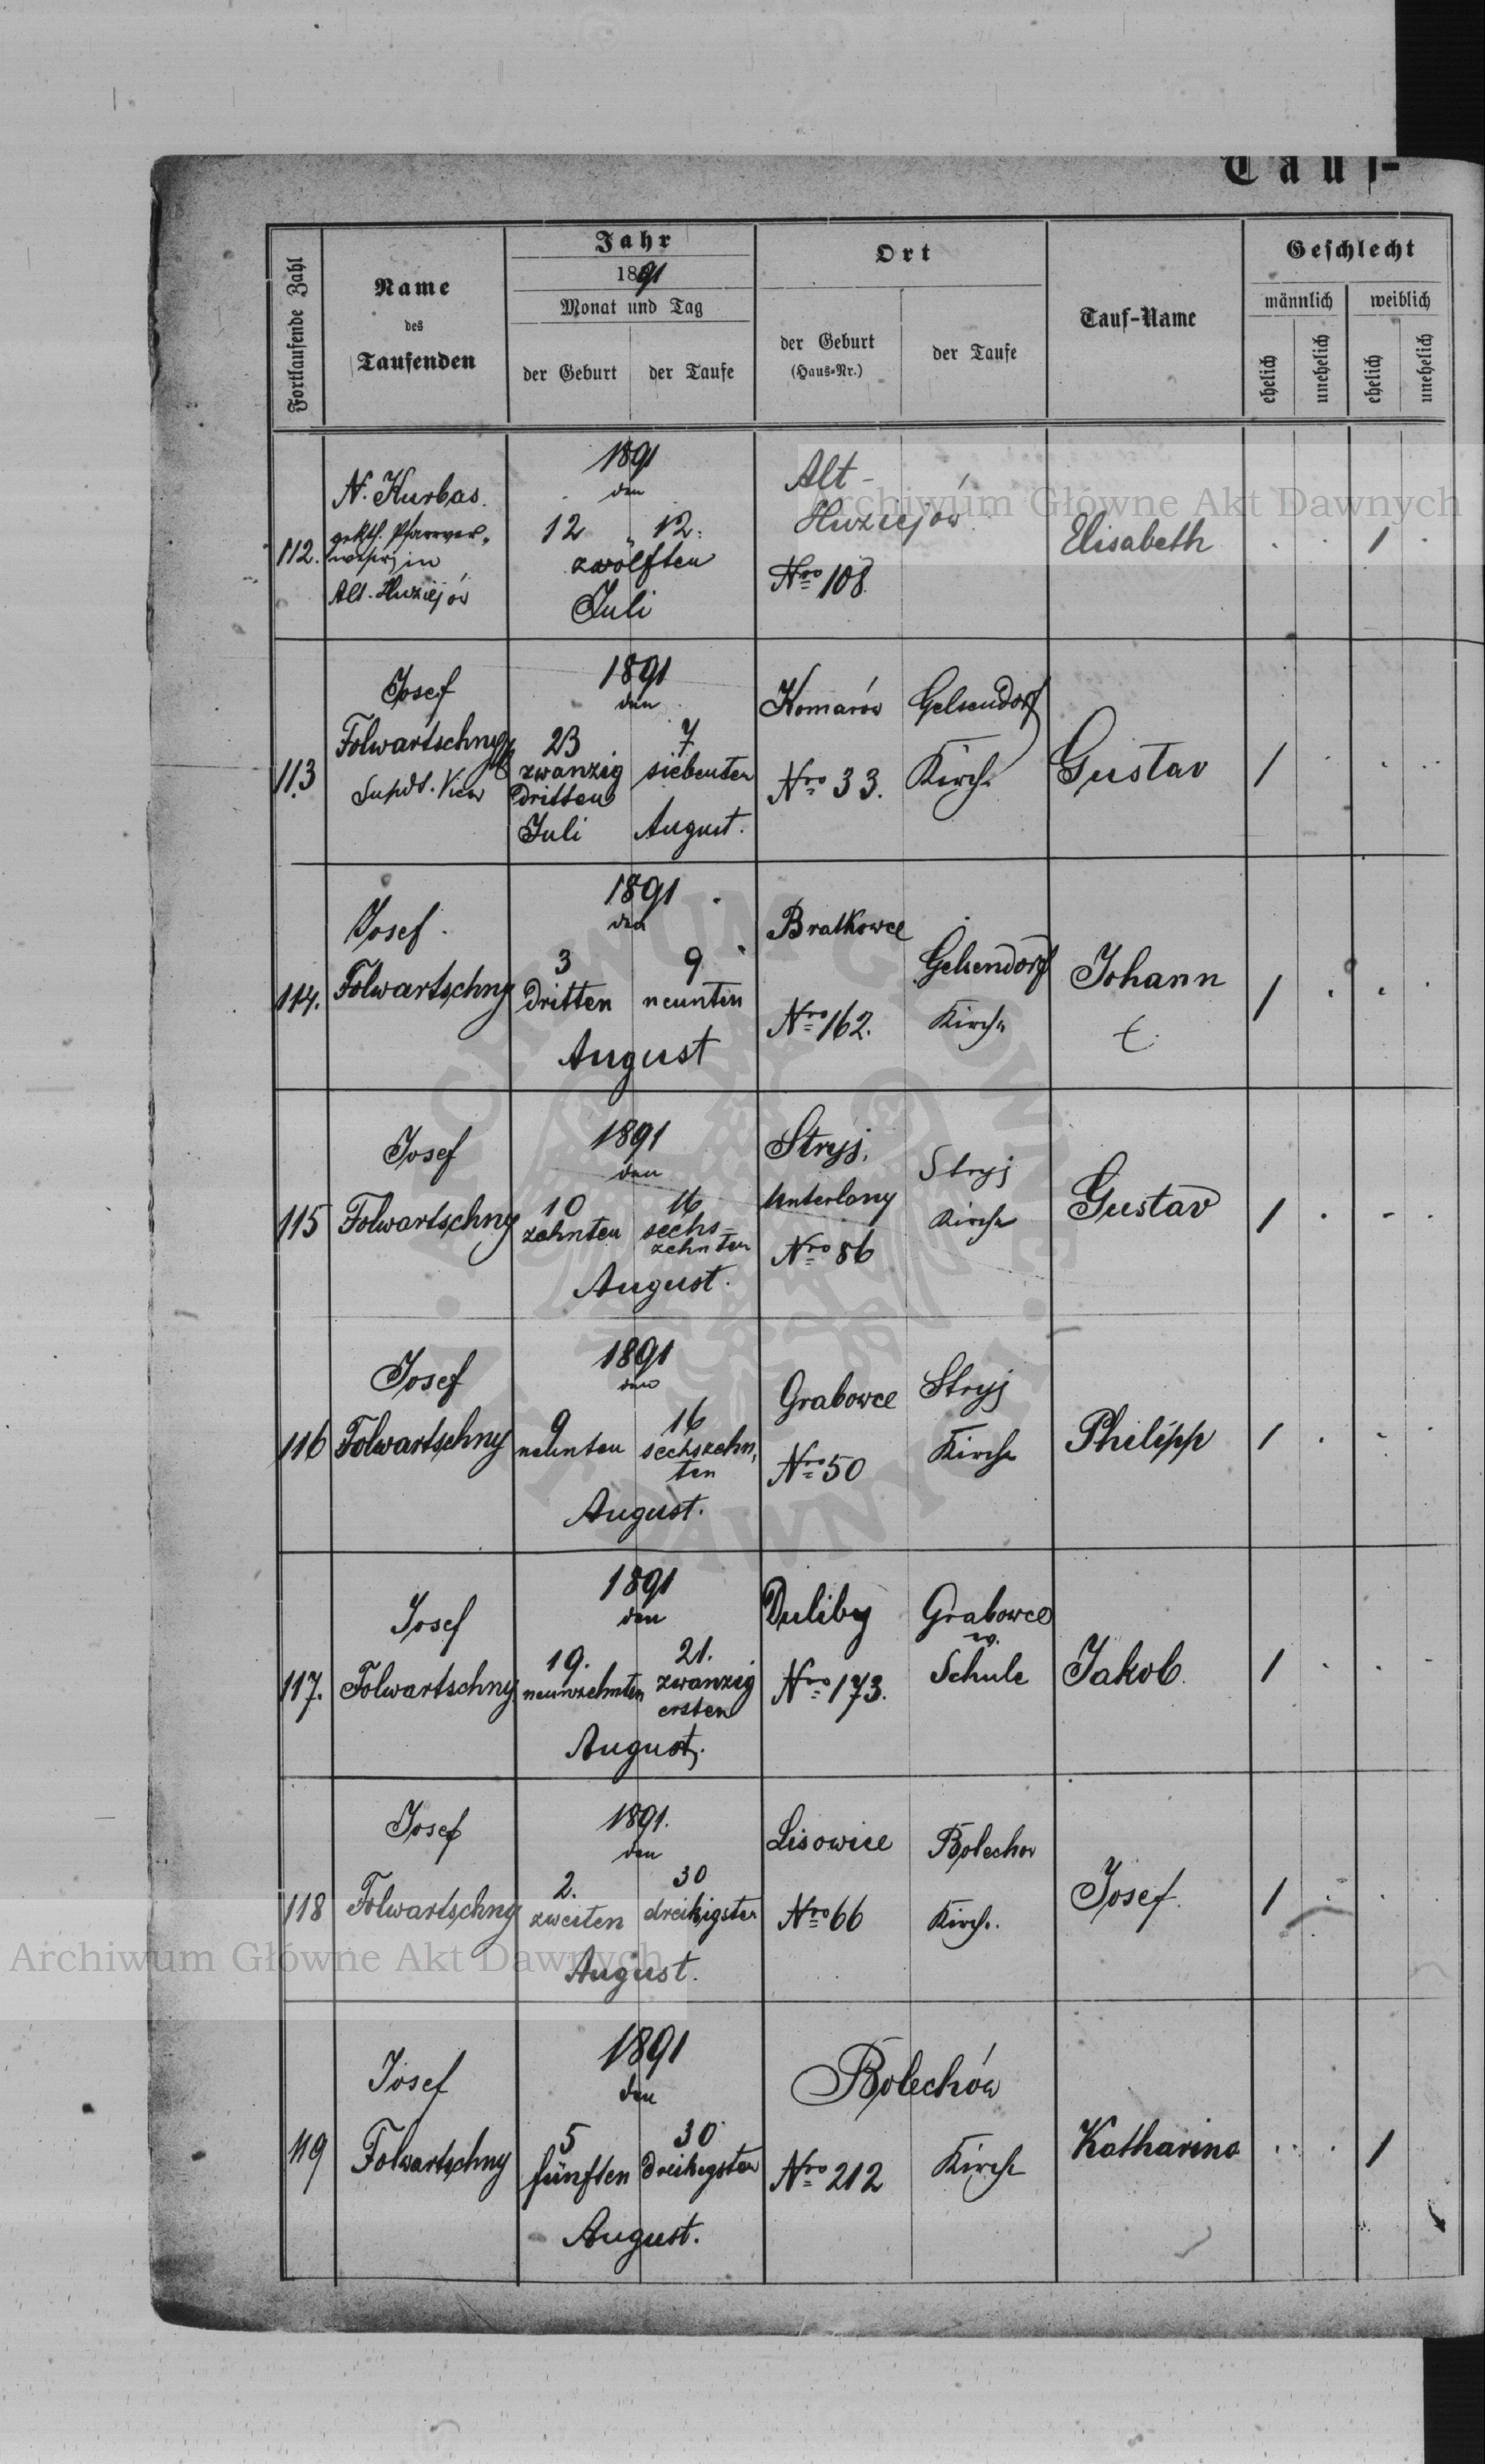 Tauf-
Fortlaufende Zahl
Name
des
Taufenden
Jahr
1891
Monat und Tag
der Geburt
der Taufe
Ort
der Geburt
(Haus-Nr.)
der Taufe
Tauf-Name
Geschlecht
männlich
weiblich
ehelich
unehelich
ehelich
unehelich
112.
N. Kurbas
in
Alt-Huziejów
1891
den
12 12.
zwölften
Juli
Alt-
Huziejów
Nro 108.
Elisabeth
1
113
Josef
Folwartschny
1891
den
23
zwanzig
dritten
Juli
7
siebenten
August.
Komarów
Nro 33.
Gelsendorf
Kirche
Gustav
1
114.
Josef
Folwartschny
1891
den
3 9
dritten neunten
August
Bratkowce
Nro 162.
Gelsendorf
Kirche
Johann
1
115
Josef
Folwartschny
1891
den
10
zehnten
16
sechs-
zehnten
August.
Stryj,
Unterlany
Nro 86
Stryj
Kirche
Gustav
1
116
Josef
Folwartschny
1891
den
9
neunten
16
sechszehn,
ten
August.
Grabowce
Nro 50
Stryj
Kirche
Philipp
1
117.
Josef
Folwartschny
1891
den
19.
neunzehnten
21.
zwanzig
ersten
August.
Duliby
Nro 173.
Grabowce
Schule
Jakob.
1
118
Josef
Folwartschny
1891.
den
2.
zweiten
30
dreißigsten
August.
Lisowice
Nro 66
Bolechow
Kirche.
Josef.
1
119
Josef
Folwartschny
1891
den
5
fünften
30
dreißigsten
August.
Bolechów
Nro 212
Kirche
Katharina
1
Archiwum Główne Akt Dawnych
Archiwum Główne Akt Dawnych
ARCHIWUM GŁÓWNE
AKT DAWNYCH